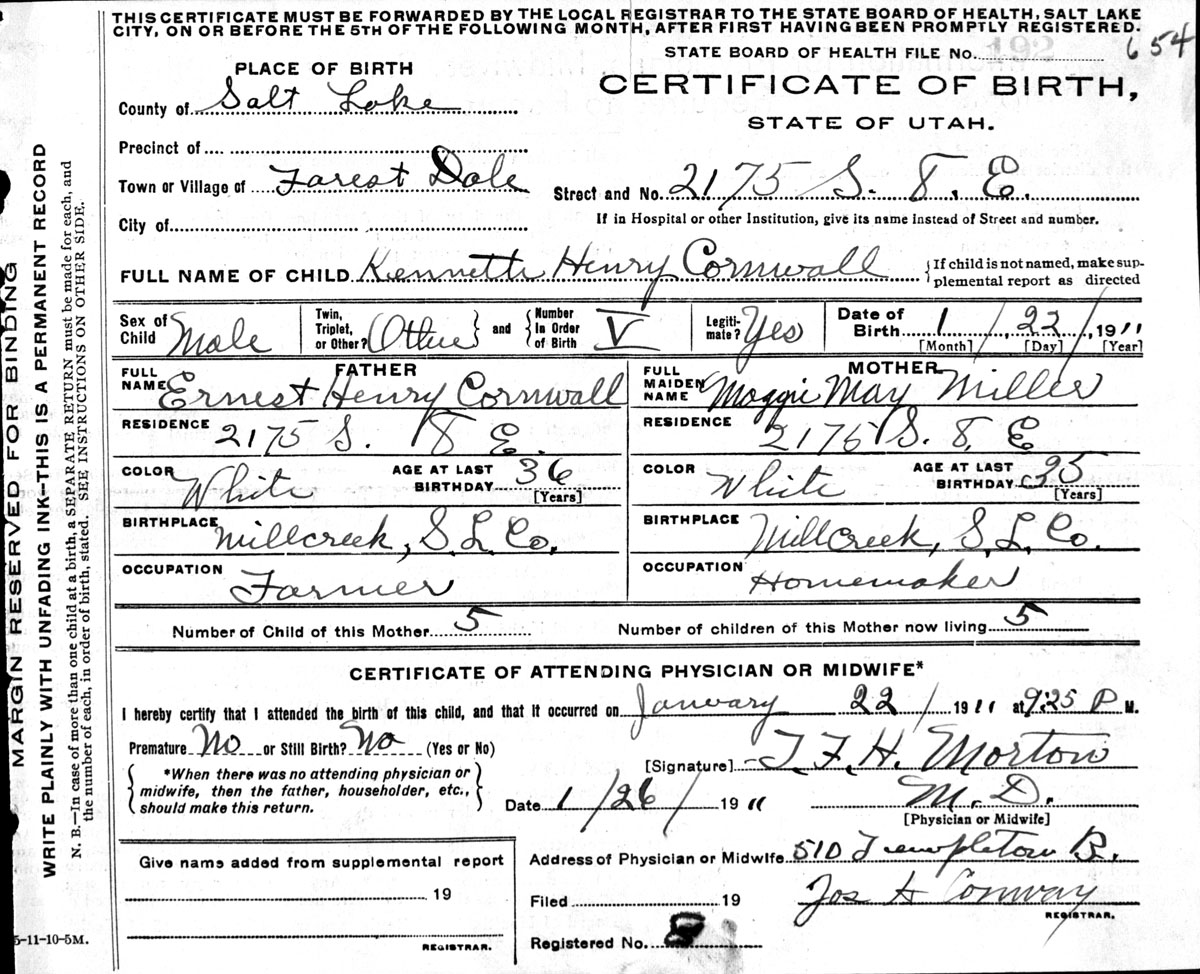 THIS CERTIFICATE MUST BE FORWARDED BY THE LOCAL REGISTRAR TO THE STATE BOARD OF HEALTH, SALT LAKE
CITY, ON OR BEFORE THE 5TH OF THE FOLLOWING MONTH, AFTER FIRST HAVING BEEN PROMPTLY REGISTERED.
STATE BOARD OF HEALTH FILE No. 654
PLACE OF BIRTH
CERTIFICATE OF BIRTH,
County of Salt Lake
STATE OF UTAH.
Precinct of
Town or Village of Forest Dale Street and No. 2175 S. 8. E.
City of
If in Hospital or other Institution, give its name instead of Street and number.
FULL NAME OF CHILD Kenneth Henry Cornwall {If child is not named, make sup-
plemental report as directed
Sex of Child Male Twin, Triplet, or Other? Other and Number in Order of Birth V Legiti-mate? Yes Date of Birth 1/22/1911
[Month] [Day] [Year]
FATHER MOTHER
FULL NAME Ernest Henry Cornwall FULL MAIDEN NAME Maggie May Miller
RESIDENCE 2175 S. 8 E. RESIDENCE 2175 S. 8. E
COLOR White AGE AT LAST BIRTHDAY 36 [Years] COLOR White AGE AT LAST BIRTHDAY 35 [Years]
BIRTHPLACE Millcreek, S.L. Co. BIRTHPLACE Millcreek, S.L. Co.
OCCUPATION Farmer OCCUPATION Homemaker
Number of Child of this Mother 5 Number of children of this Mother now living 5
CERTIFICATE OF ATTENDING PHYSICIAN OR MIDWIFE*
I hereby certify that I attended the birth of this child, and that it occurred on January 22/1911 at 9:25 P M.
Premature No or Still Birth? No (Yes or No)
[Signature] T. F. H. Morton
*When there was no attending physician or
midwife, then the father, householder, etc.,
should make this return.
Date 1/26/1911 M.D.
[Physician or Midwife]
Give name added from supplemental report
Address of Physician or Midwife 510 Templeton B.
19
Filed 19 Jos H Conway
REGISTRAR.
REGISTRAR.
Registered No.
5-11-10-5M.
MARGIN RESERVED FOR BINDING
WRITE PLAINLY WITH UNFADING INK-THIS IS A PERMANENT RECORD
N. B.—In case of more than one child at a birth, a SEPARATE RETURN must be made for each, and
the number of each, in order of birth, stated. SEE INSTRUCTIONS ON OTHER SIDE.